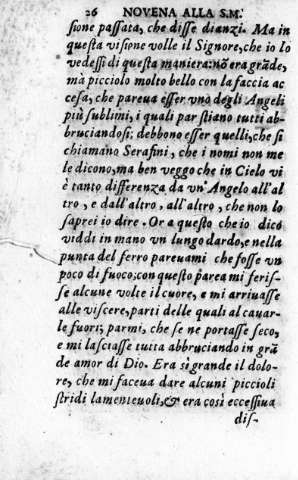 26 NOVENA ALLA S.M.
sione passata, che disse dianzi. Ma in
questa visione volle il Signore, che io lo
vedessi di questa maniera: nō era grāde,
mà picciolo molto bello con la faccia ac
cesa, che pareua esser vno degli Angeli
più sublimi, i quali par stiano tutti ab-
bruciandosi; debbono esser quelli, che si
chiamano Serafini, che i nomi non me
le dicono, ma ben veggo che in Cielo vi
è tanto differenza da vn' Angelo all' al
tro, e dall' altro, all' altro, che non lo
saprei io dire. Or a questo che io dico
viddi in mano vn lungo dardo, e nella
punta del ferro pareuami che fosse vn
poco di fuoco; con questo parea mi feris-
se alcune volte il cuore, e mi arriuasse
alle viscere, parti delle quali al cauar-
le fuori; parmi, che se ne portasse seco,
e mi lasciasse tutta abbruciando in grā
de amor di Dio. Era sì grande il dolo-
re, che mi faceua dare alcuni piccioli
stridi lamenteuoli, & era così eccessiua
dis-